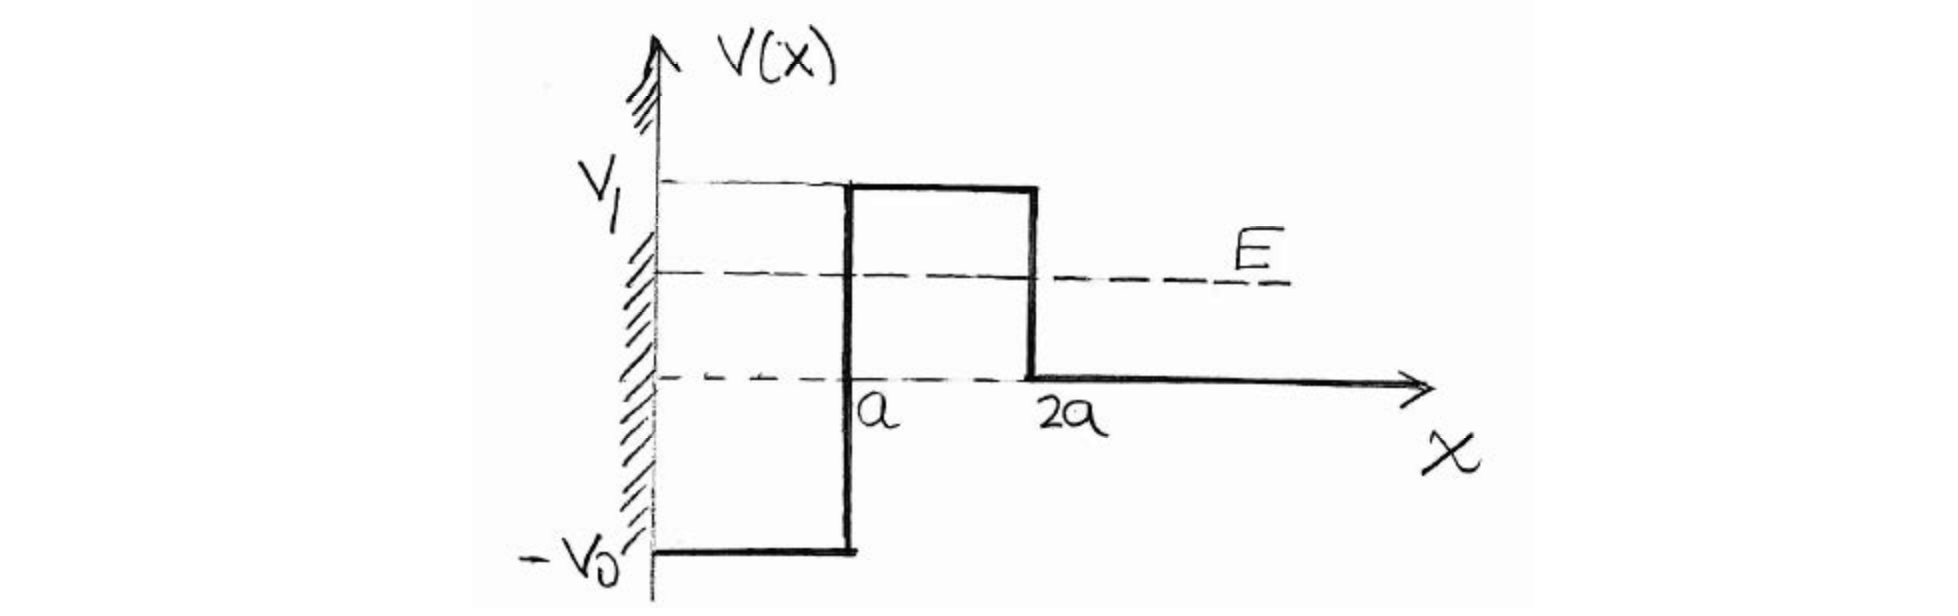 V(x)
V₁
E
a
2a
x
-V₀